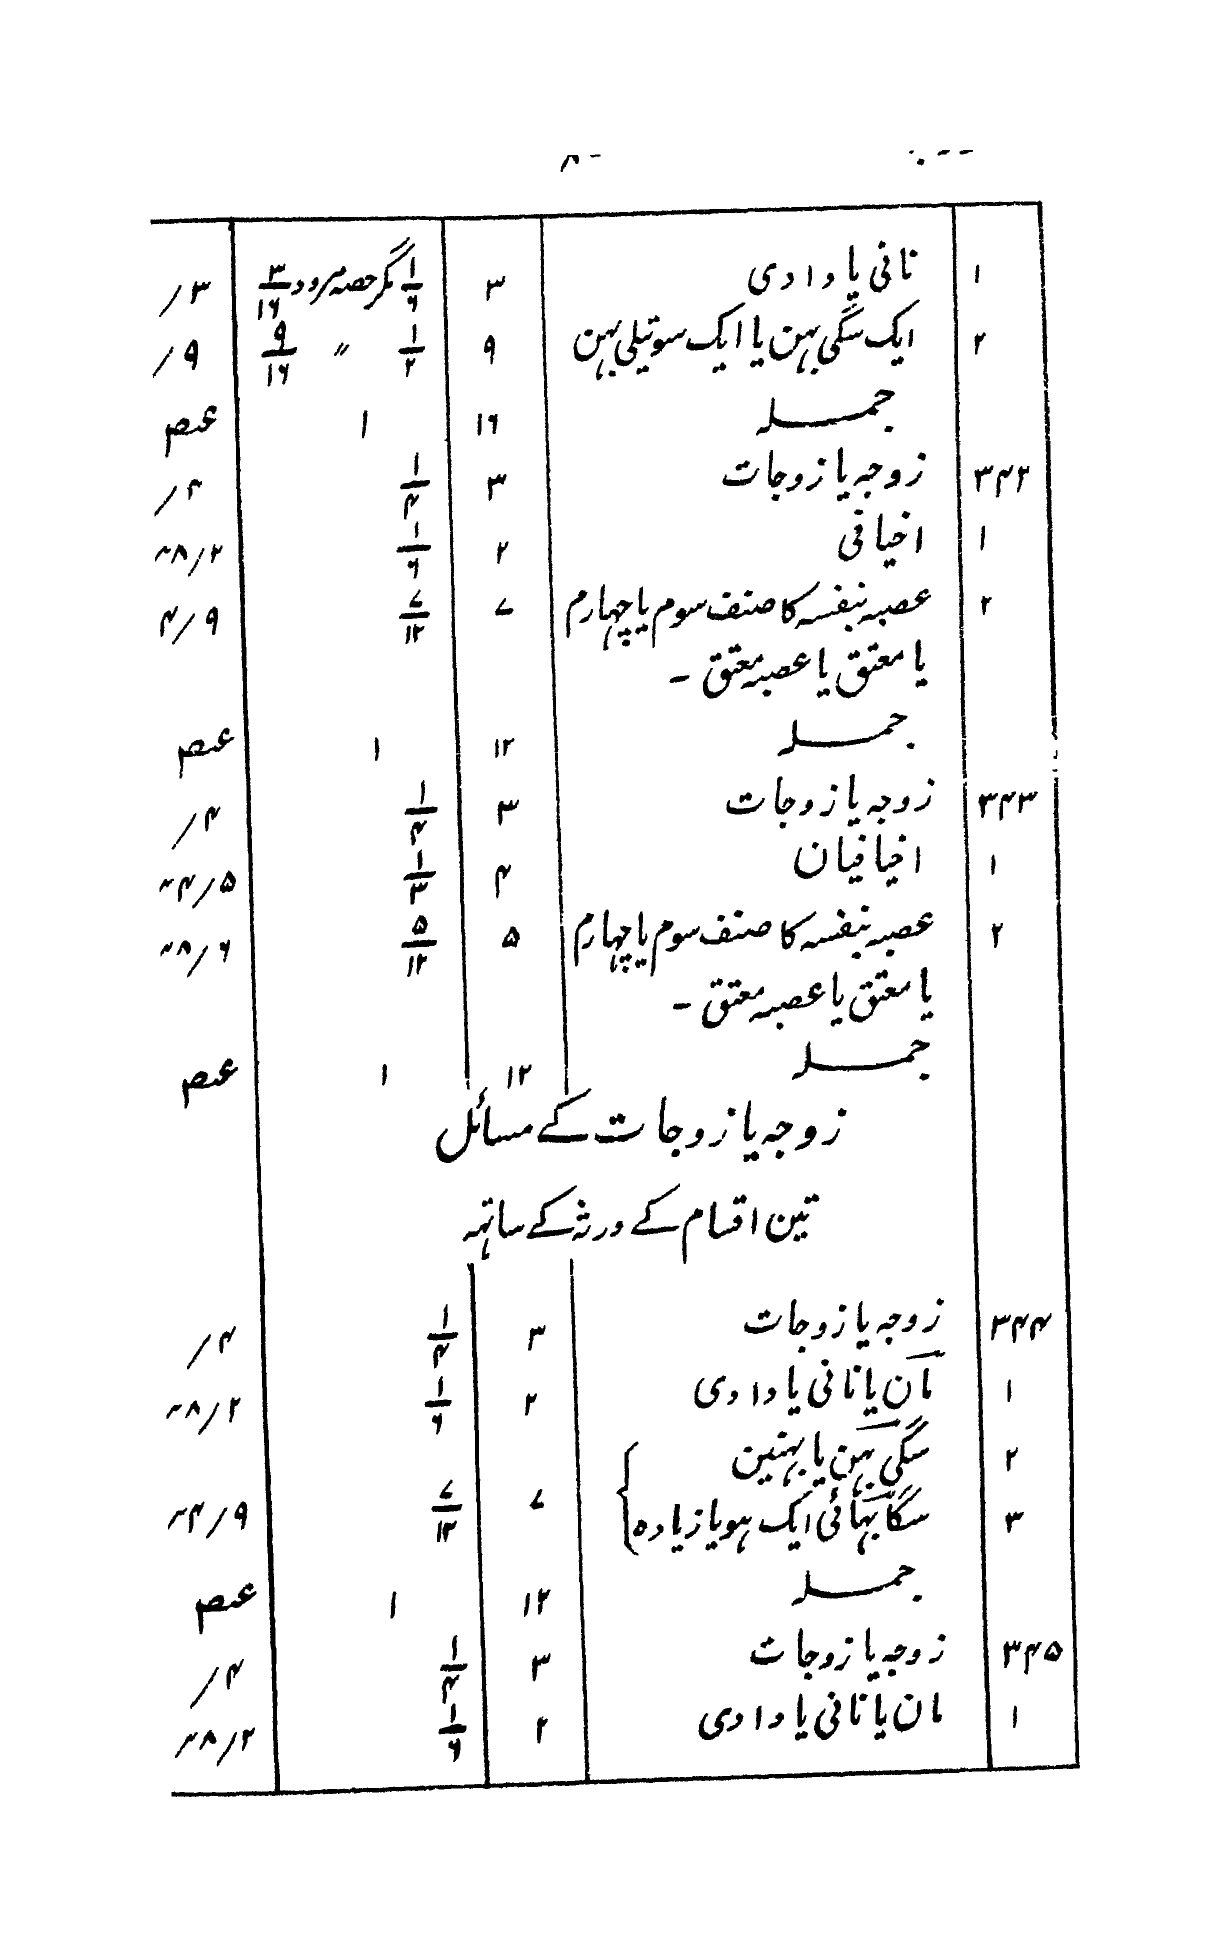 ۱ نانی یا دادی ۳ ۱/۶ مگر حصہ مردود ۳/۱۶ ۳/
۲ ایک سگی بہن یا ایک سوتیلی بہن ۹ ۱/۲ " ۹/۱۶ ۹/
جملہ ۱۶ ۱ عہ
۳۴۲ زوجہ یا زوجات ۳ ۱/۴ ۴/
۱ اخیافی ۲ ۱/۶ ۲/۸
۲ عصبہ بنفسہ کا صنف سوم یا چہارم ۷ ۷/۱۲ ۹/۴
یا معتق یا عصبہ معتق -
جملہ ۱۲ ۱ عہ
۳۴۳ زوجہ یا زوجات ۳ ۱/۴ ۴/
۱ اخیافیان ۴ ۱/۳ ۵/۴
۲ عصبہ بنفسہ کا صنف سوم یا چہارم ۵ ۵/۱۲ ۶/۸
یا معتق یا عصبہ معتق -
جملہ ۱۲ ۱ عہ
زوجہ یا زوجات کے مسائل
تین اقسام کے ورثہ کے ساتہہ
۳۴۴ زوجہ یا زوجات ۳ ۱/۴ ۴/
۱ مان یا نانی یا دادی ۲ ۱/۶ ۲/۸
۲ سگی بہن یا بہنین
۳ سگا بہائی ایک ہو یا زیادہ ۷ ۷/۱۲ ۹/۴
جملہ ۱۲ ۱ عہ
۳۴۵ زوجہ یا زوجات ۳ ۱/۴ ۴/
۱ مان یا نانی یا دادی ۲ ۱/۶ ۲/۸